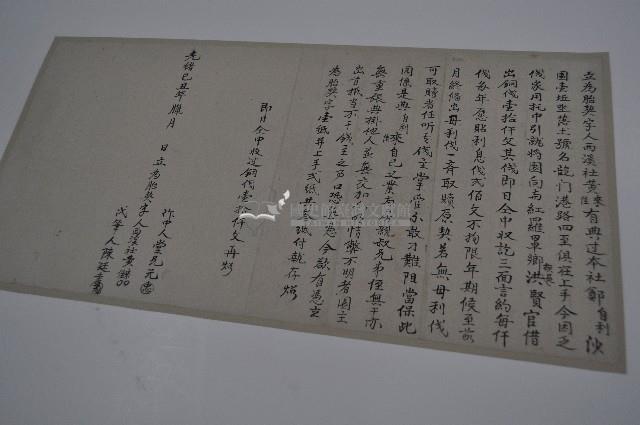 立為胎契字人西溪社黃來旺有典过本社鄭自利 泱
園壹坵坐落土號名龍门港路四至俱在上手今因乏
伐家用托中引就將園向与紅羅罩鄉洪賢官借
出銅伐壹拾仟文其伐即日仝中收訖三面言約每仟
伐每年應貼利息伐弍佰文不拘限年期候至
月終備出母利伐一齊取贖原契若無母利伐
可取贖者任听伐主掌管不敢刁難阻當保此
園係是典自利 來自己之業与親叔兄弟侄無干亦
無重張典掛他人並無交加 情弊不明者園主
出首抵当不干伐主之事口恐 為今欲有憑立
為胎契字壹紙并上手弍紙共叁紙付执存炤
即日仝中收过銅伐壹拾仟文再炤
光緒己丑年 月 日立為胎契字人西溪社黃
作中人堂兄元
代筆人陳廷